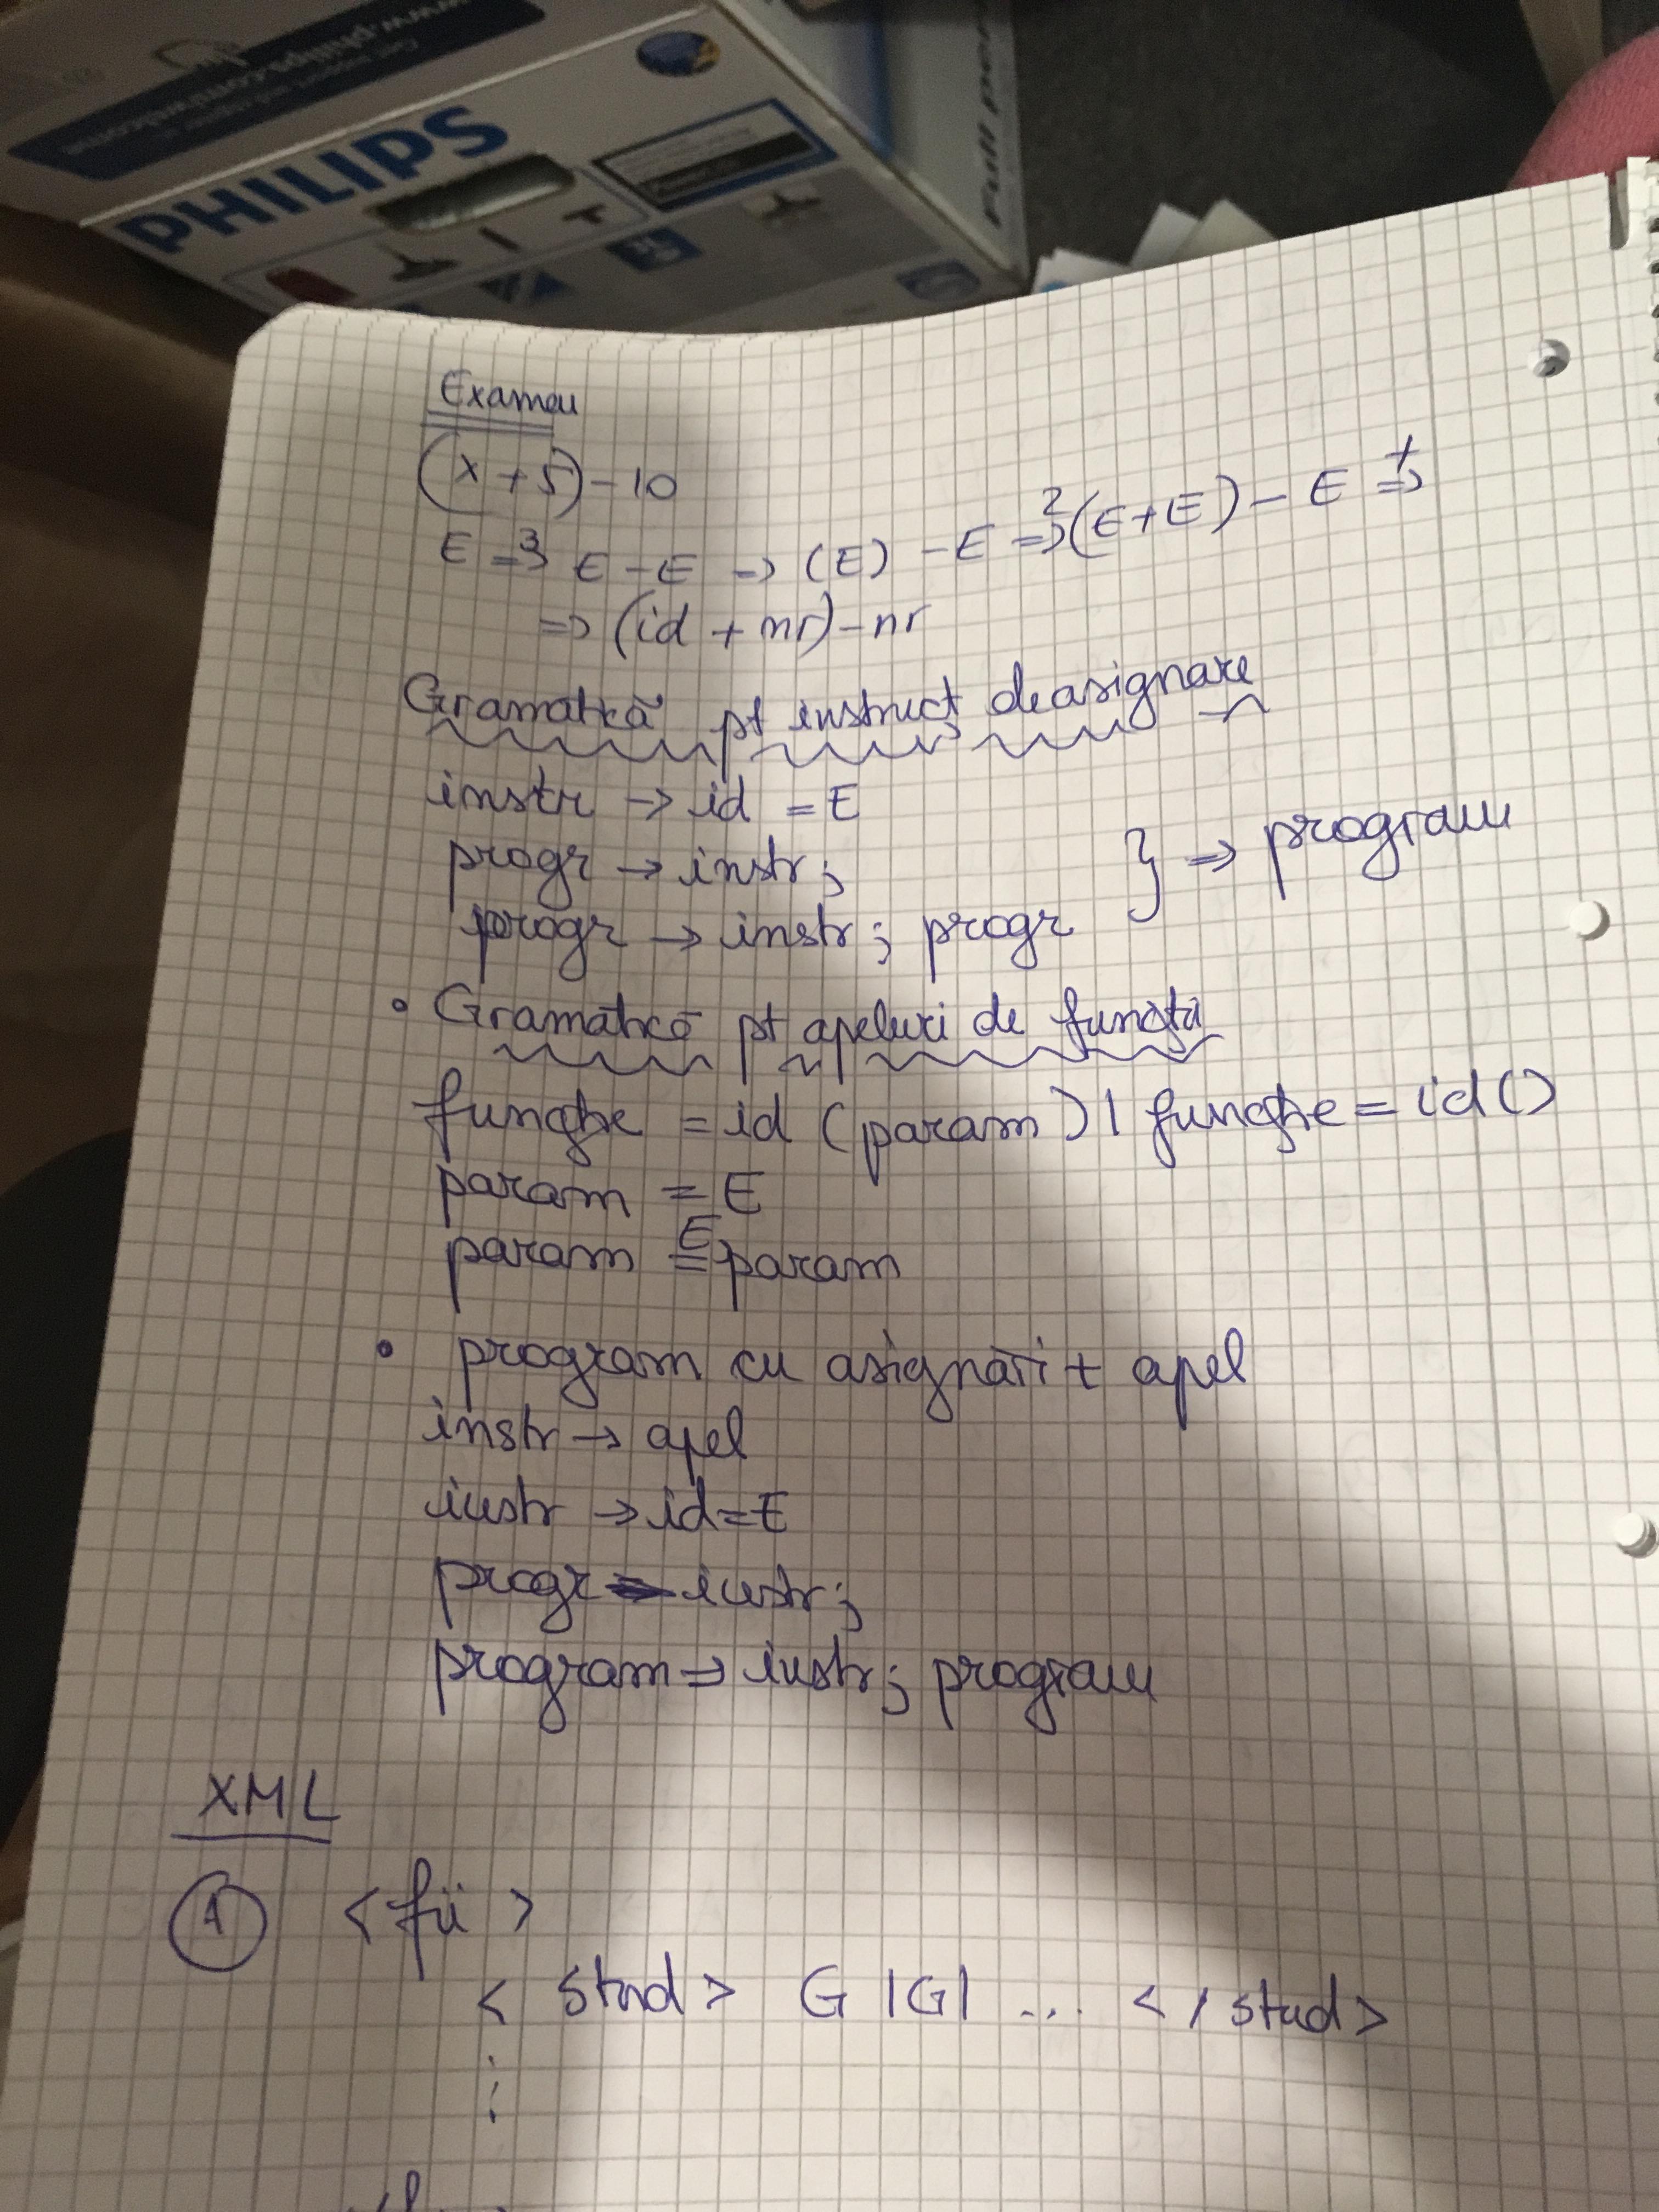 www.philips.com/welcome
PHILIPS
Full per
Examen
(x + 5) - 10
E =>³ E - E => (E) - E =>² (E+E) - E =>⁺
=> (id + nr) - nr
Gramatică pt instrucț de asignare
instr -> id = E
progr -> instr;
progr -> instr; progr } => program
• Gramatică pt apeluri de funcții
funcție = id (param) | funcție = id ()
param = E
param = E param
• program cu asignări + apel
instr -> apel
instr -> id = E
progr -> instr;
program => instr; program
XML
① <fii>
< stud> G |G| ... </ stud>
⋮